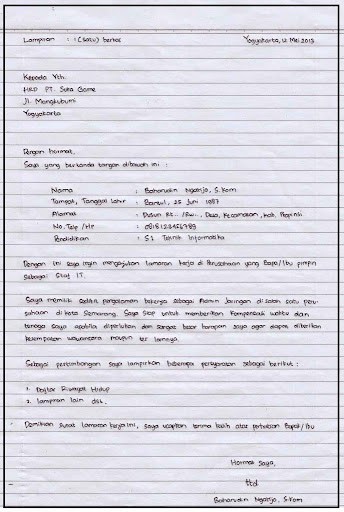 Lampiran : 1 (satu) berkas Yogyakarta, 12 Mei 2013
Kepada Yth.
HRD PT. Suka Game
Jl. Mangkubumi
Yogyakarta
Dengan hormat,
Saya yang bertanda tangan dibawah ini :
Nama : Baharudin Ngatijo, S.Kom
Tempat, Tanggal Lahir : Bantul, 25 Juni 1987
Alamat : Dusun Rt.. /Rw.., Desa, Kecamatan, Kab, Propinsi
No. Telp /Hp : 0818123456789
Pendidikan : S1 Teknik Informatika
Dengan ini saya ingin mengajukan lamaran kerja di Perusahaan yang Bapak/Ibu pimpin
sebagai Staf IT.
Saya memiliki sedikit pengalaman bekerja sebagai Admin Jaringan di salah satu peru-
sahaan di kota Semarang. Saya siap untuk memberikan kompensasi waktu dan
tenaga saya apabila diperlukan dan sangat besar harapan saya agar dapat diberikan
kesempatan wawancara maupun tes lainnya.
Sebagai pertimbangan saya lampirkan beberapa persyaratan sebagai berikut :
1. Daftar Riwayat Hidup
2. lampiran lain dsb.
Demikian surat lamaran kerja ini, saya ucapkan terima kasih atas perhatian Bapak/Ibu
Hormat Saya,
ttd
Baharudin Ngatijo, S.Kom